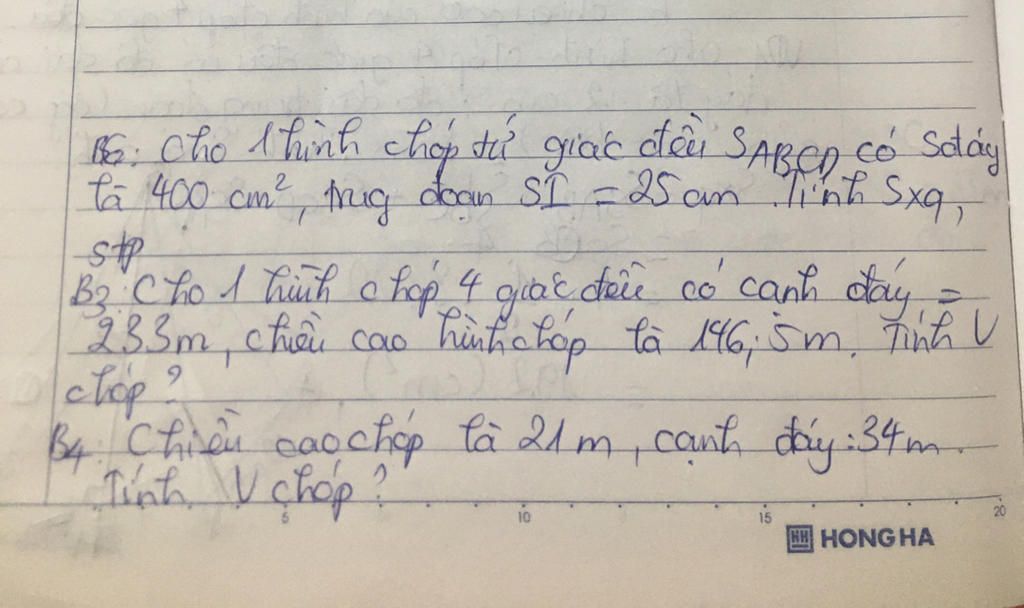 B2: Cho 1 hình chóp tứ giác đều SABCD có Sđáy
là 400 cm², trug đoạn SI = 25 cm. Tính Sxq,
Stp
B3: Cho 1 hình chóp 4 giác đều có cạnh đáy =
233m, chiều cao hình chóp là 146,5m. Tính V
chóp?
B4: Chiều cao chóp là 21m, cạnh đáy: 34m.
Tính V chóp?
5 10 15 20
HH HONG HA